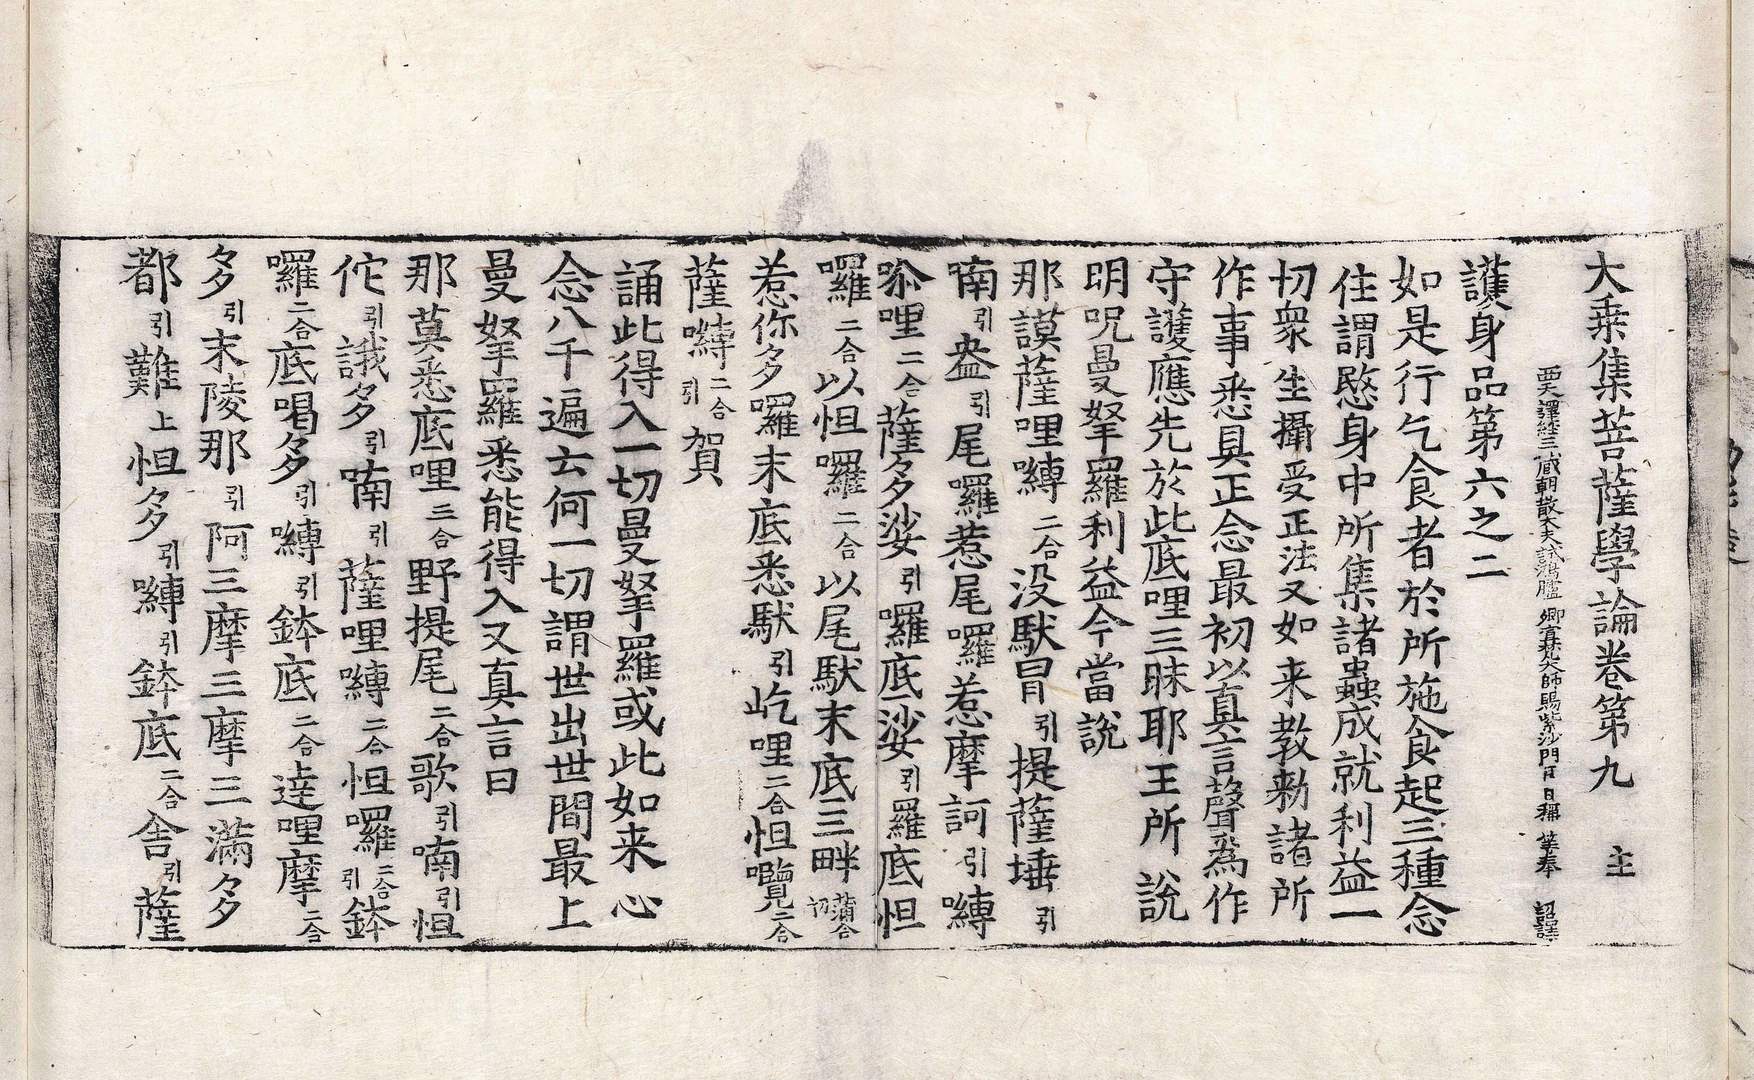 大乗集菩薩學論卷第九 主
西天譯經三藏朝散大夫試鴻臚卿宣梵大師賜紫沙門臣日稱等奉 詔譯
護身品第六之二
如是行乞食者於所施食起三種念
住謂愍身中所集諸蟲成就利益一
切衆生攝受正法又如来教勑諸所
作事悉具正念最初以真言聲爲作
守護應先於此底哩三昧耶王所説
明呪曼拏羅利益今當説
那謨薩哩嚩二合没馱冐引提薩埵引
喃引盎引尾囉惹尾囉惹摩訶引嚩
喍哩二合薩多娑引囉底娑引囉底怛
囉二合以怛囉二合以尾馱末底三畔蒲合切
惹你多囉末底悉馱引屹哩二合怛㘕二合
薩嚩二合引賀引
誦此得入一切曼拏羅或此如来心
念八千遍云何一切謂世出世間最上
曼拏羅悉能得入又真言曰
那莫悉底哩三合野提尾二合歌引喃引怛
佗引誐多引喃引薩哩嚩二合怛囉二合引鉢
囉二合底喝多引嚩引鉢底二合達哩摩二合
多引末陵那引阿三摩三摩三滿多
都引難上怛多引嚩引鉢底二合舍引薩